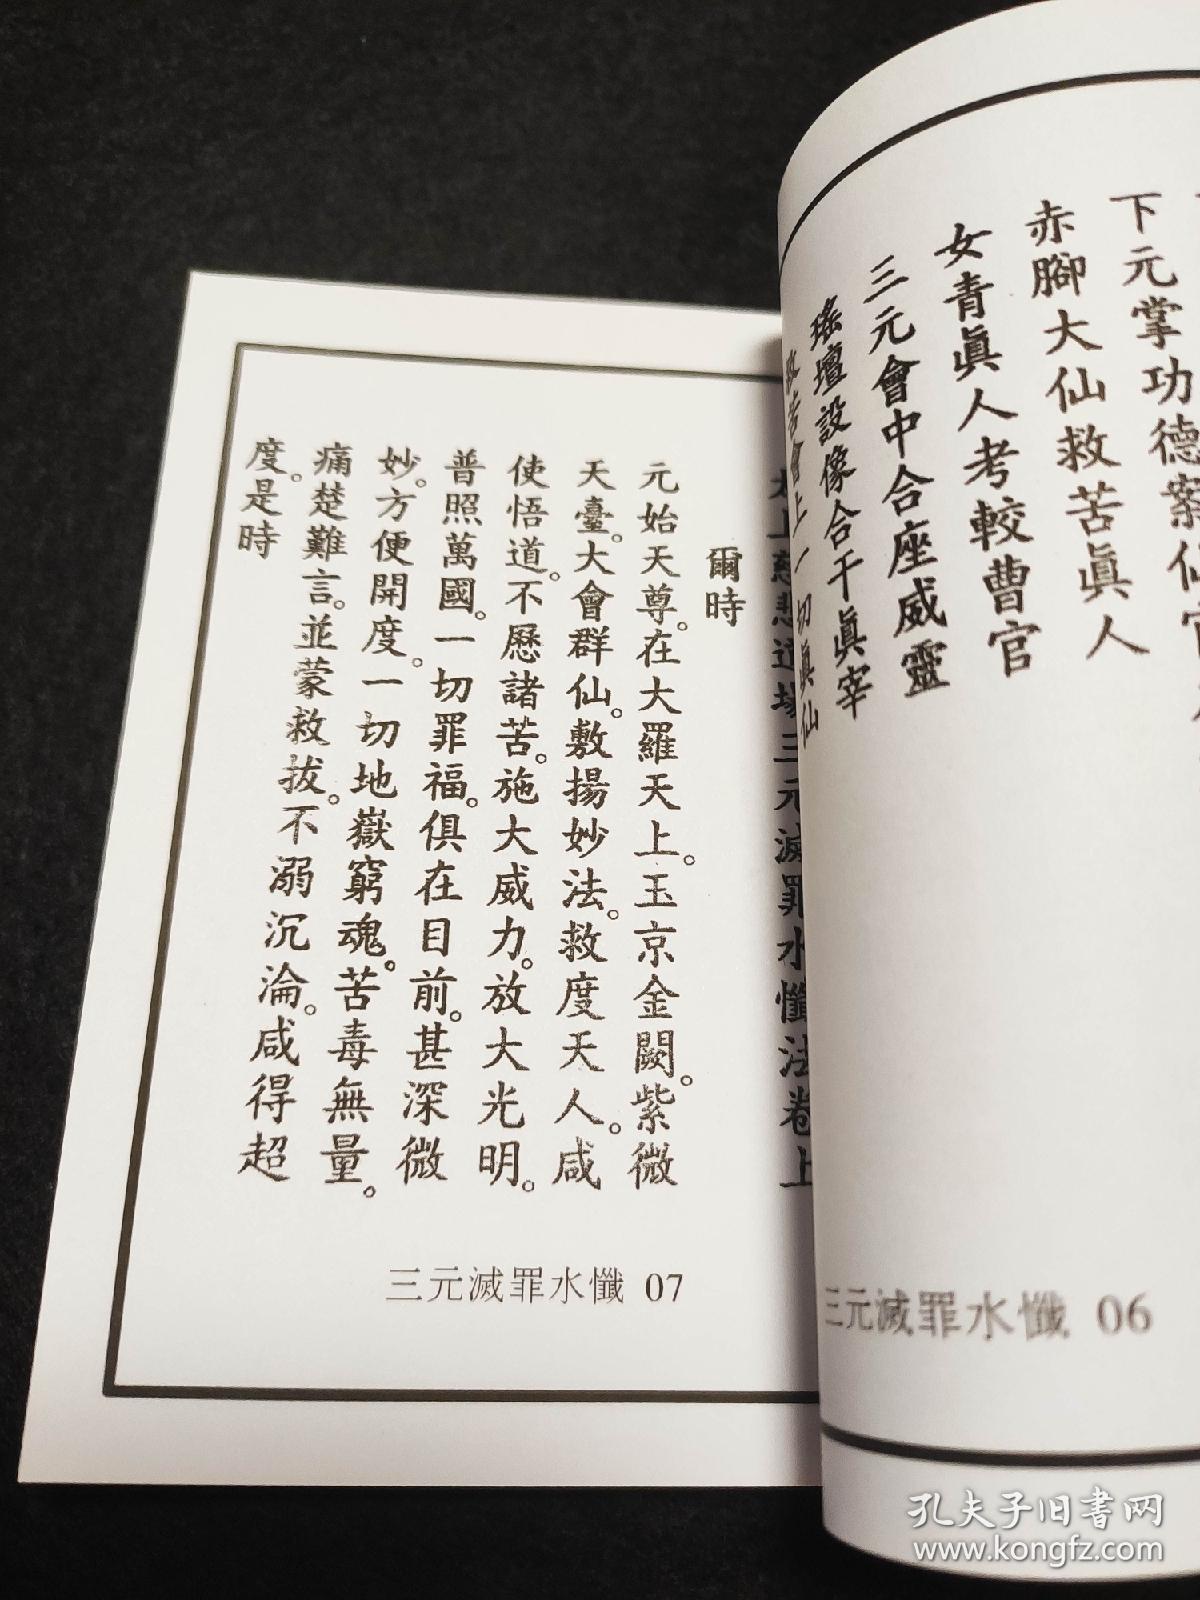 下元掌功德案仙官
赤腳大仙救苦眞人
女青眞人考較曹官
三元會中合座威靈
瑤壇設像合干眞宰
救苦會上一切眞仙
三元滅罪水懺 06
太上慈悲道場三元滅罪水懺法卷上
爾時
元始天尊。在大羅天上。玉京金闕。紫微
天臺。大會群仙。敷揚妙法。救度天人。咸
使悟道。不歷諸苦。施大威力。放大光明。
普照萬國。一切罪福。俱在目前。甚深微
妙。方便開度。一切地獄窮魂。苦毒無量。
痛楚難言。並蒙救拔。不溺沉淪。咸得超
度。是時
三元滅罪水懺 07
孔夫子旧书网
www.kongfz.com